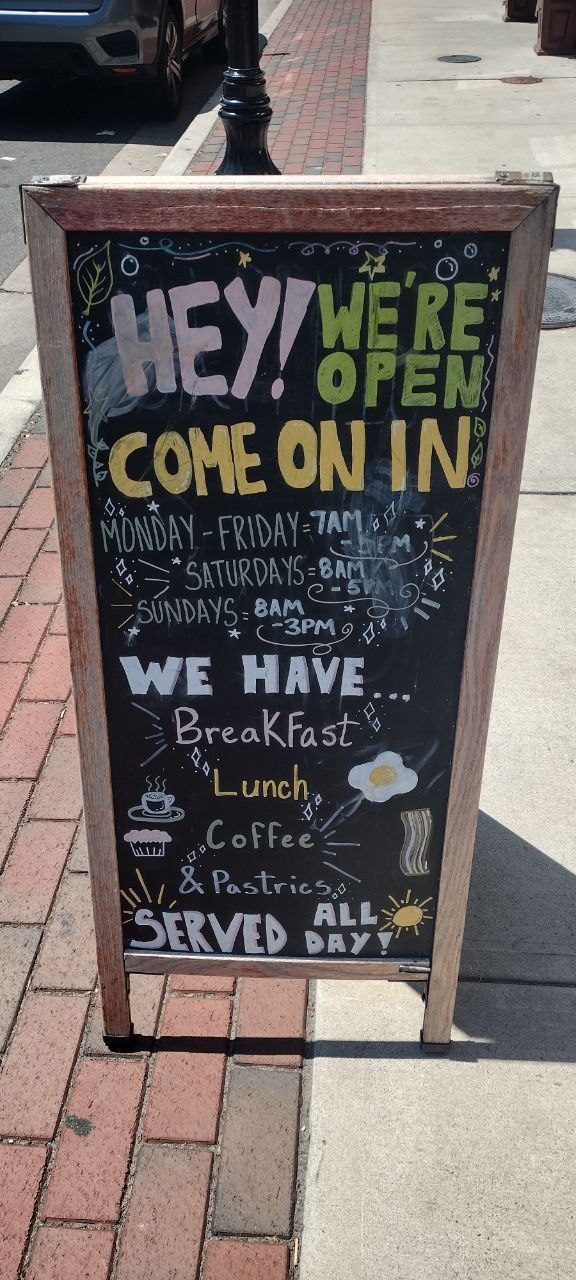 HEY! WE'RE OPEN
COME ON IN
MONDAY-FRIDAY=7AM
SATURDAYS=8AM
-5PM
SUNDAYS=8AM
-3PM
WE HAVE...
BreaKFast
Lunch
Coffee
& Pastries
SERVED ALL DAY!